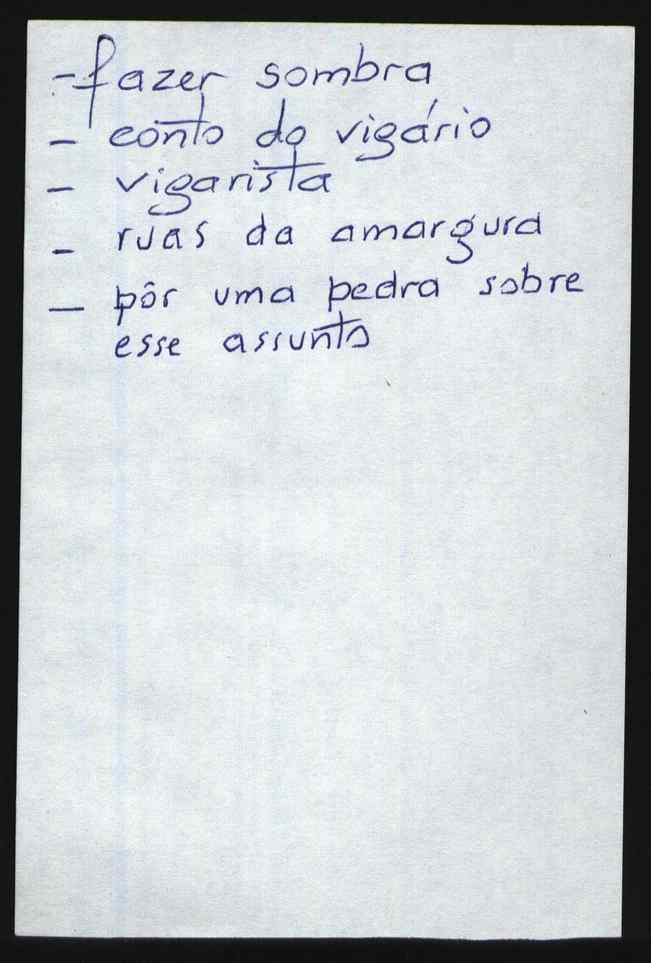 - fazer sombra
- conto do vigário
- vigarista
- ruas da amargura
- pôr uma pedra sobre
esse assunto